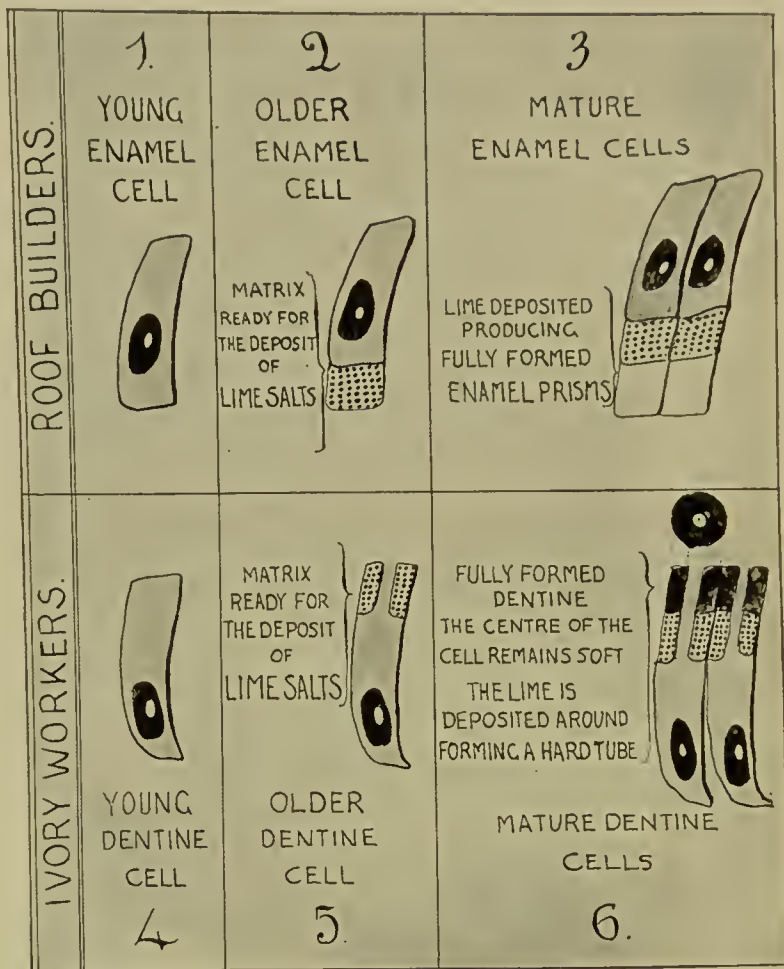 ROOF BUILDERS.
1.
YOUNG
ENAMEL
CELL
2
OLDER
ENAMEL
CELL
MATRIX
READY FOR
THE DEPOSIT
OF
LIME SALTS
3
MATURE
ENAMEL CELLS
LIME DEPOSITED
PRODUCING
FULLY FORMED
ENAMEL PRISMS
IVORY WORKERS.
YOUNG
DENTINE
CELL
4
MATRIX
READY FOR
THE DEPOSIT
OF
LIME SALTS
OLDER
DENTINE
CELL
5.
FULLY FORMED
DENTINE
THE CENTRE OF THE
CELL REMAINS SOFT
THE LIME IS
DEPOSITED AROUND
FORMING A HARD TUBE
MATURE DENTINE
CELLS
6.